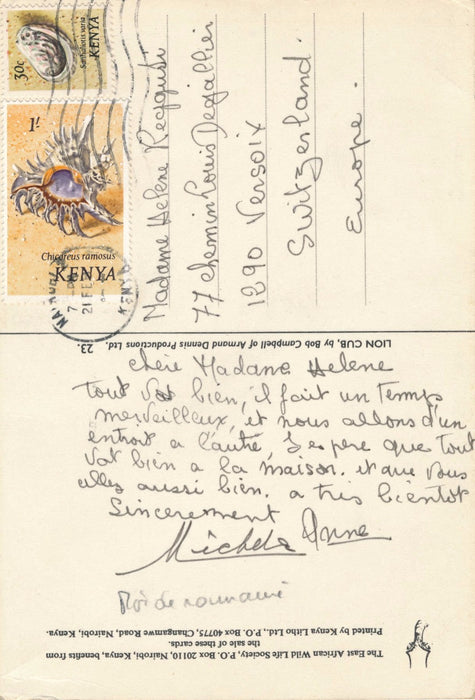 30c
Sanhaliotis varia
KENYA
1/-
Chicoreus ramosus
KENYA
21 FE
Madame Helene
77 chemin Louis Degallier
1290 Versoix
Switzerland
Europe.
LION CUB, by Bob Campbell of Armand Dennis Productions Ltd. 23.
chère Madame Helene
tout vat bien, il fait un temps
merveilleux, et nous allons d'un
entroit a l'autre, J'espère que tout
vat bien a la maison. et que vous
allez aussi bien. a très bientot
Sincerement
Michel Anne
Roi de roumanie
The East African Wild Life Society, P.O. Box 20110, Nairobi, Kenya, benefits from
the sale of these cards.
Printed by Kenya Litho Ltd., P.O. Box 40775, Changamwe Road, Nairobi, Kenya.